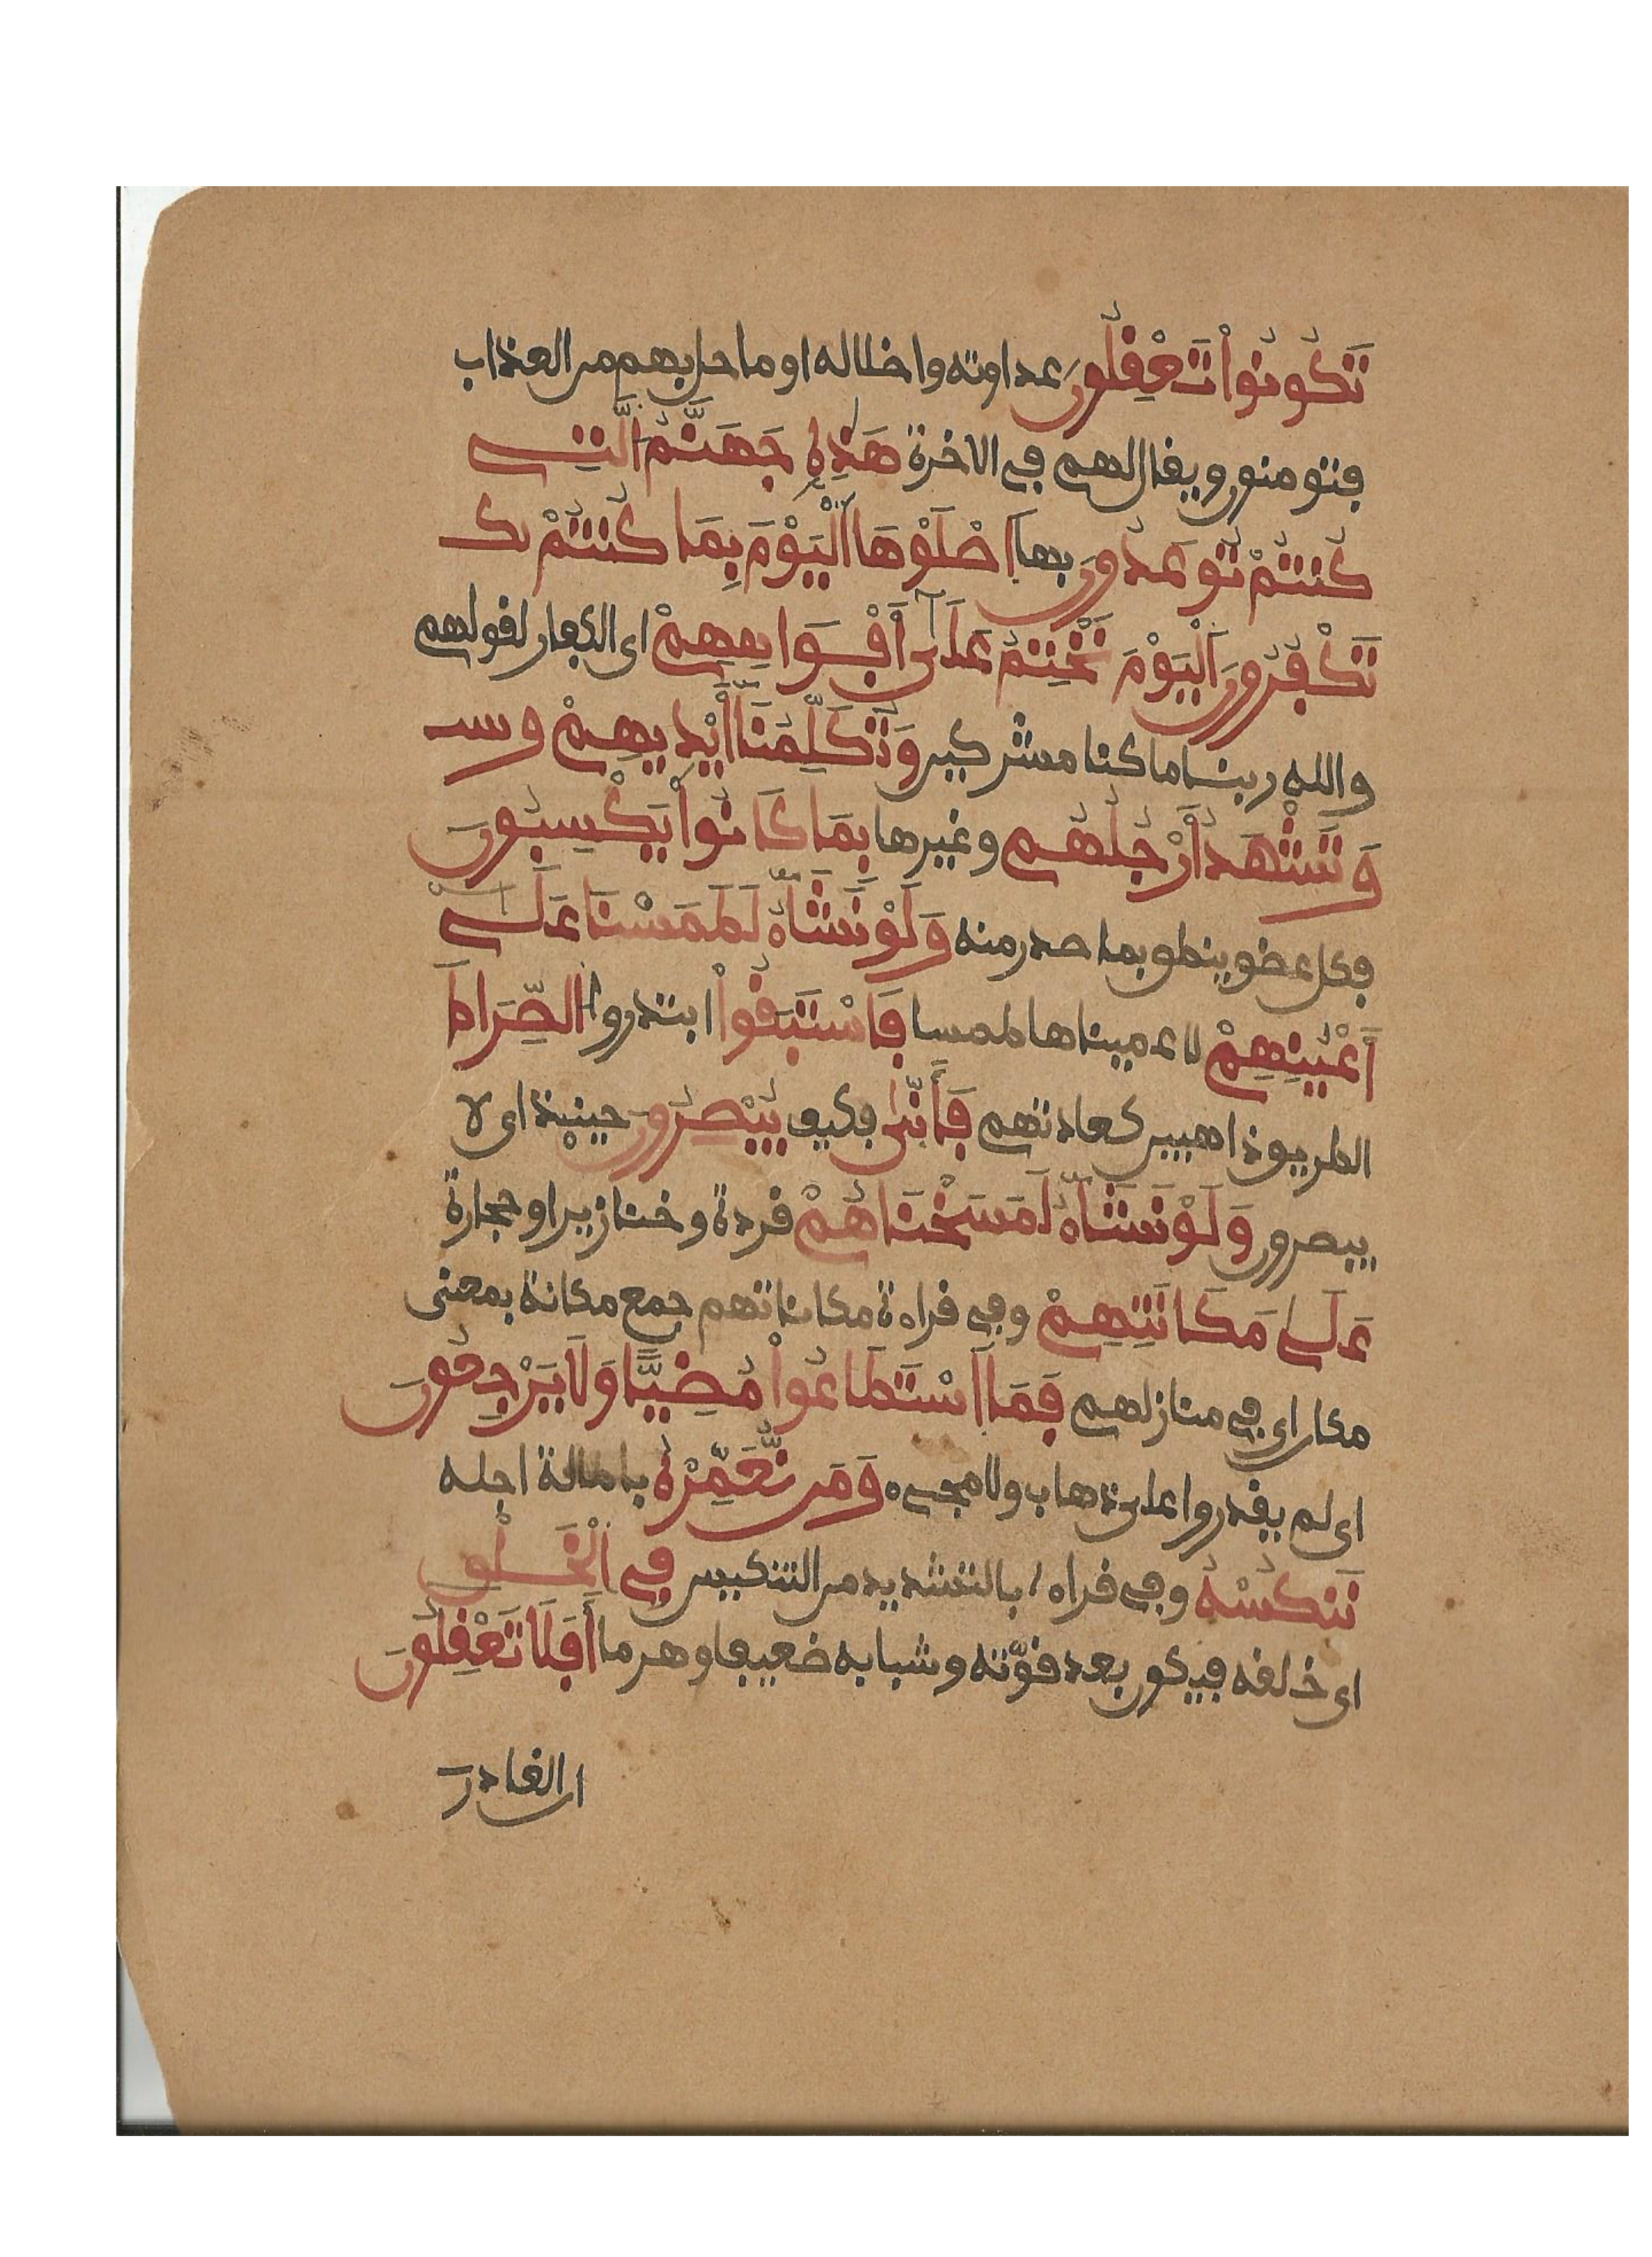 تَكُونُواْ تَعْفِلُونَ عداوته واضلاله او ما حل بهم من العذاب
فتومنون ويقال لهم في الاخرة هَذِهِ جَهَنَّمُ الَّتِے
كُنتُمْ تُوعَدُونَ بها اَصْلَوْهَا اَلْيَوْمَ بِمَا كُنتُمْ تك
تَكْفُرُونَ اَلْيَوْمَ نَخْتِمُ عَلَىٰ أَفْوَاهِهِمْ اى الكفار لقولهم
والله ربنا ما كنا مشركين وَتُكَلِّمُنَا أَيْدِيهِمْ وسـ
وَتَشْهَدُ أَرْجُلُهُم وغيرها بِمَا كَانُواْ يَكْسِبُونَ
فكل عضو ينطق بما صدر منه وَلَوْ نَشَآءُ لَطَمَسْنَا عَلَىٰ
أَعْيُنِهِمْ لاعميناها طمسا فَاسْتَبَقُواْ ابتدروا الصِّرَاطَ
الطريق ذاهبين كعادتهم فَأَنّىٰ فكيف يُبْصِرُونَ حينيذ اى لا
يبصرون وَلَوْ نَشَآءُ لَمَسَخْنَاهُمْ قردة وخنازير او حجارة
عَلَىٰ مَكَانَتِهِمْ وفي قراءة مكاناتهم جمع مكانة بمعنى
مكان اى في منازلهم فَمَا اَسْتَطَاعُواْ مُضِيًّا وَلَا يَرْجِعُونَ
اى لم يقدروا على ذهاب ولا مجىء وَمَن نُّعَمِّرْهُ باطالة اجله
نَنكُسْهُ وفي قراءة بالتشديد من التنكيس فِي اِلْخَلْقِ
اى خلقه فيكون بعد قوّته وشبابه ضعيفا وهرما أَفَلَا تَعْقِلُونَ
ان القادر